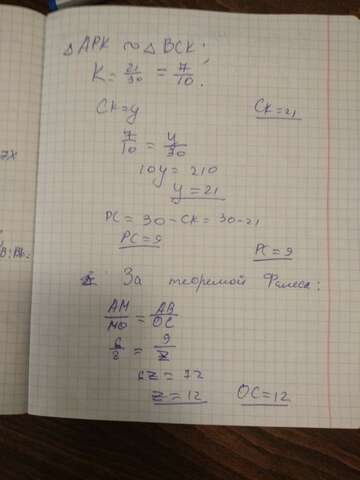 △APK ∾ △BCK.
K = 21/30 = 7/10.
CK = y
CK = 21
7/10 = y/30
10y = 210
y = 21
PC = 30 - CK = 30 - 21
PC = 9
PC = 9
За теоремой Фалеса:
AM/MO = AB/OC
6/8 = 9/z
6z = 72
z = 12
OC = 12